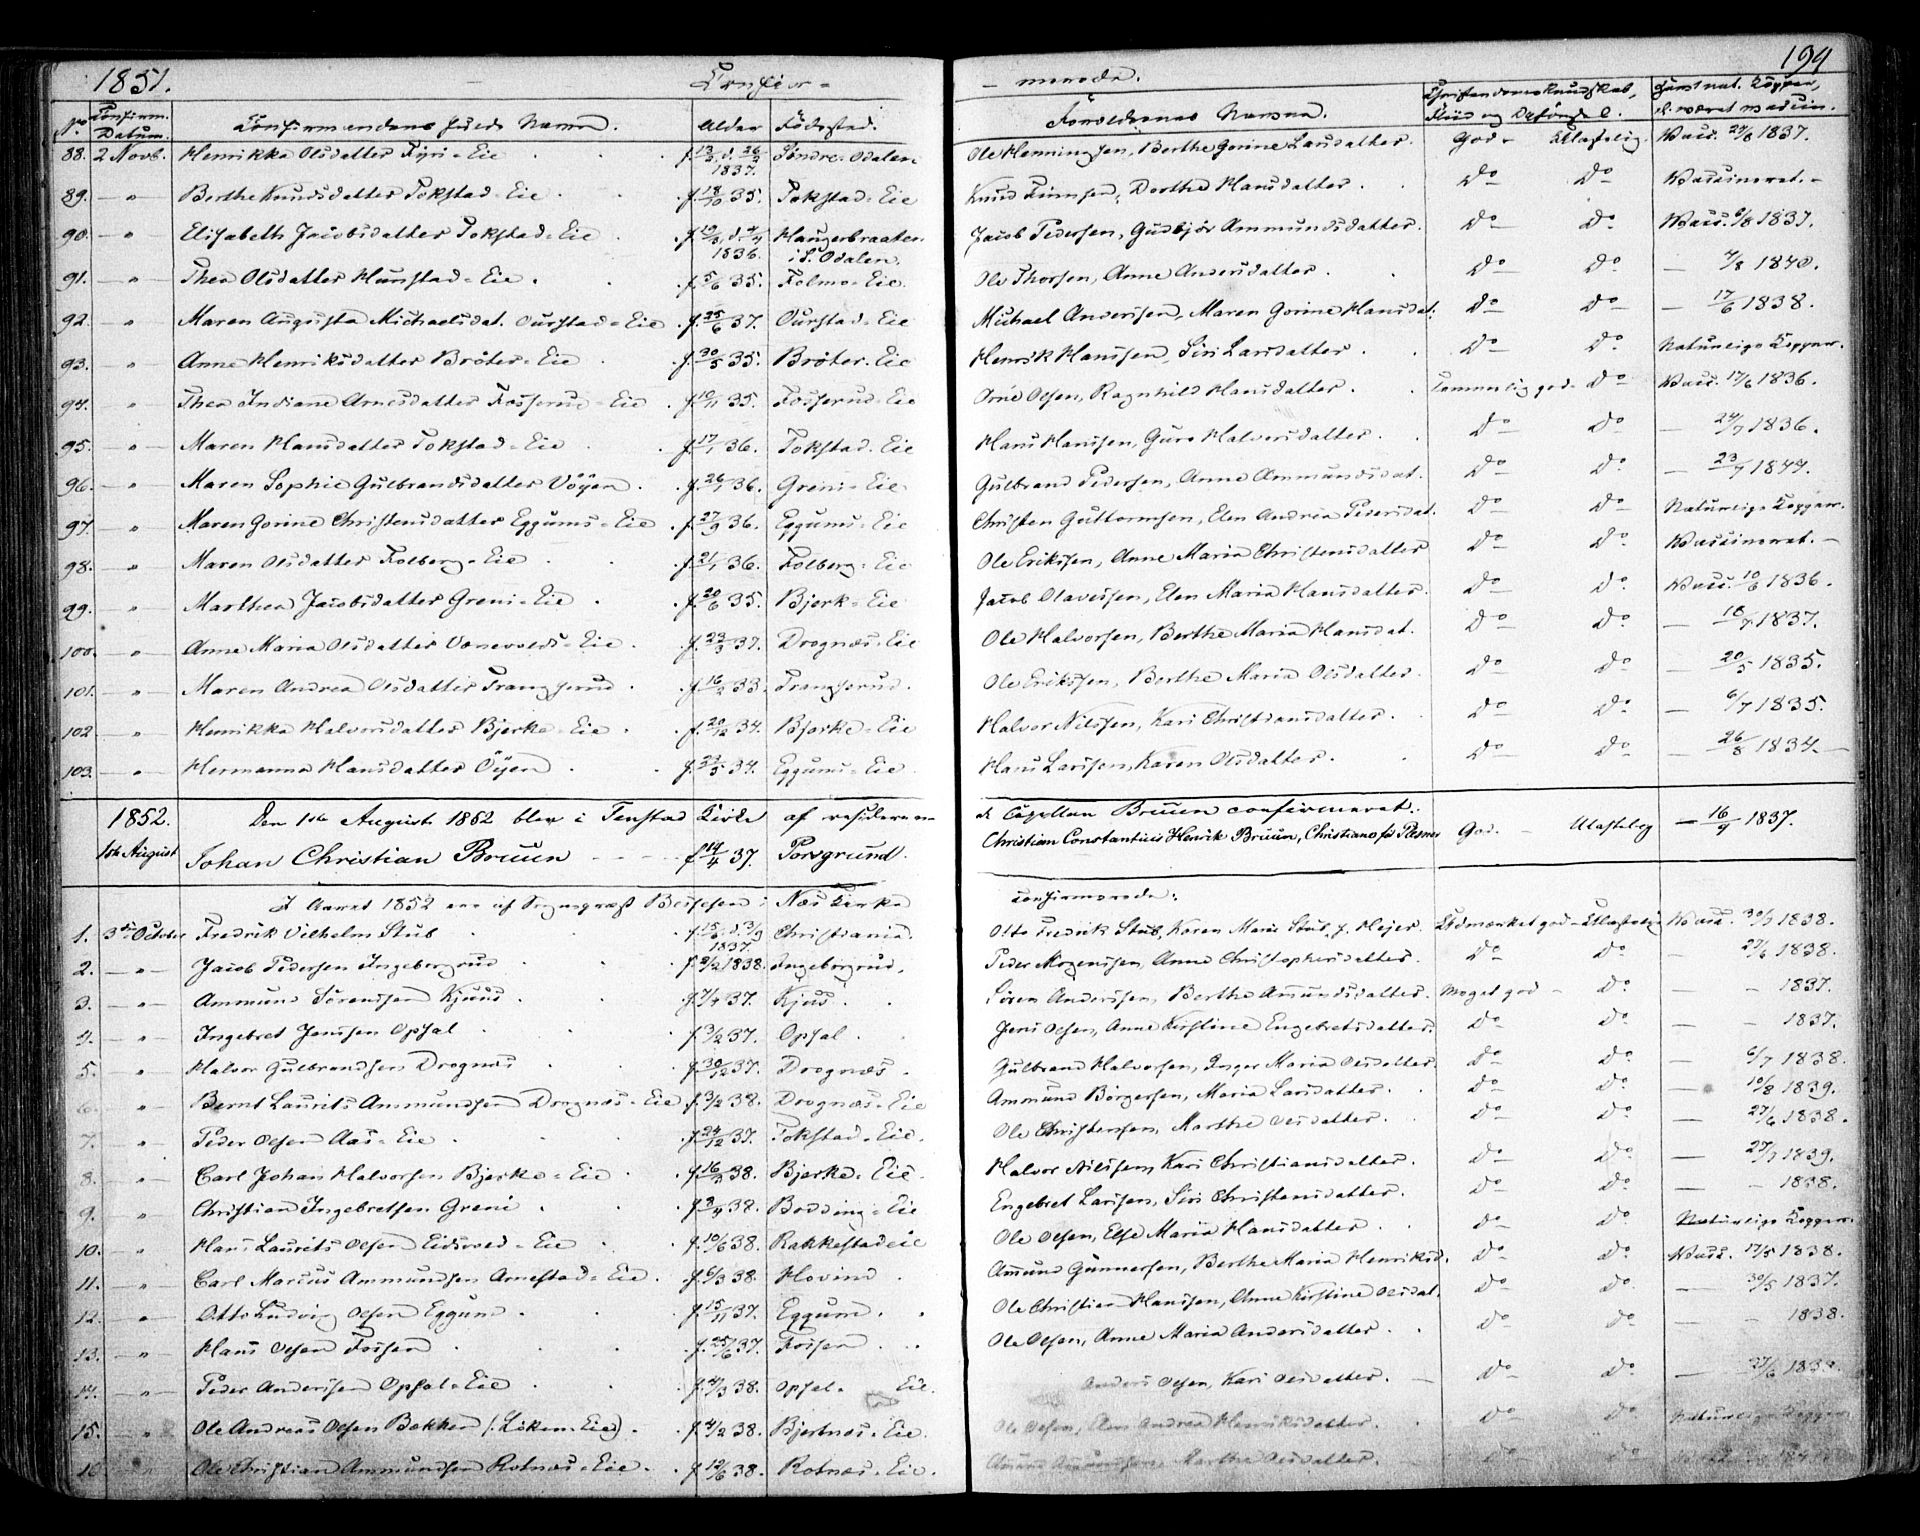 1851. Confir- - merede. 194
No Confirm. Datum. Confirmandens fulde Navn. Alder Fødested. Forældrenes Navne. Christendomskundskab, Flid og Opførsel.
88. 2 Novb. Henrikka Olsdatter Fyri-Eie f. 13/2, d. 26/2 1837. Søndre-Odalen Ole Henningsen, Berthe Gorine Larsdatter. God - Ulastelig. Vacc. 24/8 1837.
89. — " — Berthe Knudsdatter Tokstad-Eie f. 18/10 35. Tokstad-Eie Knud Finnsen, Dorthe Hansdatter. Do Do Vaccineret. -
90. — " — Elisabeth Jacobsdatter Tokstad-Eie f. 19/3, d. 4/4 1836. Haugerbraaten i S. Odalen. Jacob Pedersen, Gudbjør Ammundsdatter. Do Do Vacc. 6/8 1837.
91. — " — Thea Olsdatter Hunstad-Eie. f. 5/6 35. Folmo-Eie. Ole Thorsen, Anne Andersdatter. Do Do — 4/8 1840.
92. — " — Maren Augusta Michaelsdat. Ourstad-Eie f. 25/6 37. Ourstad-Eie Michael Anderssen, Maren Gorine Hansdat. Do Do — 17/6 1838.
93. — " — Anne Henriksdatter Brøter-Eie f. 30/5 35. Brøter-Eie Henrik Hanssen, Siri Larsdatter. Do Do Naturlige Kopper.
94. — " — Thea Indiane Arnesdatter Fosserud-Eie f. 10/11 35. Fosserud-Eie Arne Olsen, Ragnhild Hansdatter. Temmelig god - Do Vacc. 17/6 1836.
95. — " — Maren Hansdatter Tokstad-Eie f. 17/1 36. Tokstad-Eie Hans Hanssen, Guro Halvorsdatter. Do Do — 24/7 1836.
96. — " — Maren Sophie Gulbrandsdatter Vöyen f. 26/1 36. Greni-Eie Gulbrand Pedersen, Anne Ammundsdat. Do Do — 23/7 1844.
97. — " — Maren Gorine Christensdatter Eggums-Eie f. 27/9 36. Eggums-Eie Christen Guttormsen, Elen Andrea Pedersdat. Do Do Naturlige Kopper.
98. — " — Maren Olsdatter Folberg-Eie f. 21/1 36. Folberg-Eie Ole Erikssen, Anne Maria Christensdatter Do Do Vaccineret. -
99. — " — Marthea Jacobsdatter Greni-Eie f. 20/6 35. Bjerk-Eie Jacob Olavessen, Elen Maria Hansdatter. Do Do Vacc. 10/6 1836.
100. — " — Anne Maria Olsdatter Eie f. 23/3 37. Drognæs-Eie Ole Halvorsen, Berthe Maria Hansdat. Do Do — 18/7 1837.
101. — " — Maren Andrea Olsdatter Frangserud. f. 16/2 33. Frangserud. Ole Erikssen, Berthe Maria Olsdatter. Do Do — 20/5 1835.
102 — " — Henrikka Halvorsdatter Bjerke-Eie f. 20/12 34. Bjerke-Eie Halvor Nilssen, Kari Christiansdatter. Do Do — 6/7 1835.
103. — " — Hermanna Hansdatter Vöyen f. 23/5 34. Eggums-Eie Hans Larssen, Karen Olsdatter. Do Do — 26/8 1834. —
1852. Den 1ste August 1852 blev i Fenstad Kirke af residerende Capellan Bruun confirmeret.
1ste August Johan Christian Bruun f 14/4 37. Porsgrund. Christian Constantius Henrik Bruun, Christiane fd Plesner God. - Ulastelig — 16/9 1837.
I Aaret 1852 ere af Sognepræst i Næs Kirke confirmerede:
1. 3die October Fredrik Vilhelm Stub f. 15/ d. 3/9 1837 Christiania. Otto Fredrik Stub, Karen Marie Stub, f. Mejer. Udmærket god - Ulastelig Vacc. 30/7 1838.
2. — " — Jacob Pedersen Ingeborgrud f. 2/2 1838. Ingeborgrud. Peder Mogenssen, Anne Christophersdatter. Do Do — 27/6 1838.
3. — " — Ammund Sørenssen Kjuus f. 7/4 37. Kjus. Søren Anderssen, Berthe Amundsdatter. Meget god - Do — - 1837.
4. — " — Ingebret Jenssen Opsal f. 3/2 37. Opsal. Jens Olsen, Anne Kirstine Engebretsdatter. Do Do — - 1837.
5. — " — Halvor Gulbrandsen Drognæs f. 30/12 37. Drognæs. Gulbrand Halvorsen, Inger Maria Olsdatter Do Do — 6/7 1838.
6. — " — Bernt Laurits Ammundsen Drognæs-Eie f. 3/2 38. Drognæs-Eie Ammund Börgersen, Maria Larsdatter. Do Do — 10/8 1839.
7. — " — Peder Olsen Aas-Eie f. 24/12 37. Tokstad-Eie. Ole Christensen, Marthe Olsdatter. Do Do — 27/6 1838.
8. — " — Carl Johan Halvorsen Bjerke-Eie f. 16/3 38. Bjerke-Eie. Halvor Nilssen, Kari Christiansdatter. Do Do — 23/7 1839.
9. — " — Christian Ingebretsen Greni f. 3/4 38. Bodding-Eie Engebret Larssen, Siri Christensdatter. Do Do — - 1838.
10. — " — Hans Laurits Olsen Eidsvold-Eie f. 10/6 38. Rakkestadeie Ole Olsen, Else Maria Hansdatter Do Do Naturlige Kopper.
11. — " — Carl Marius Ammundsen Arnestad-Eie. f. 6/3 38. Hovind Amund Gunnersen, Berthe Maria Henriksd. Do Do Vacc. 17/5 1838.
12. — " — Otto Ludvig Olsen Eggum f. 15/11 37. Eggum. Ole Christian Hanssen, Anne Kirstine Olsdat. Do Do — 30/5 1837.
13. — " — Hans Olsen Fossen f. 25/6 37. Fossen Ole Olsen, Anne Maria Andersdatter. Do Do — - 1838.
14. — " — Peder Anderssen Opsal-Eie f. 4/3 38. Opsal-Eie. Anders Olsen, Kari Olsdatter. Do Do — 27/6 1838.
15. — " — Ole Andreas Olsen Bakken (:Løken-Eie) f. 4/2 38. Bjertnæs-Eie. Ole Olsen, Elen Andrea Henriksdatter. Do Do Naturlige Kopper.
16 — " — Ole Christian Ammundsen Rotnæs-Eie. f. 12/6 38. Rotnæs-Eie. Amund Amundsen, Marthe Olsdatter. Do Do